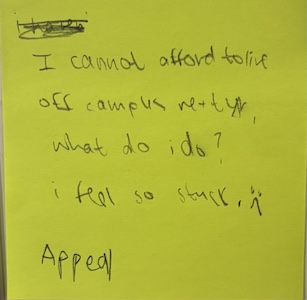 I cannot afford to live
off campus next yr,
what do i do?
i feel so stuck. :(
Appeal